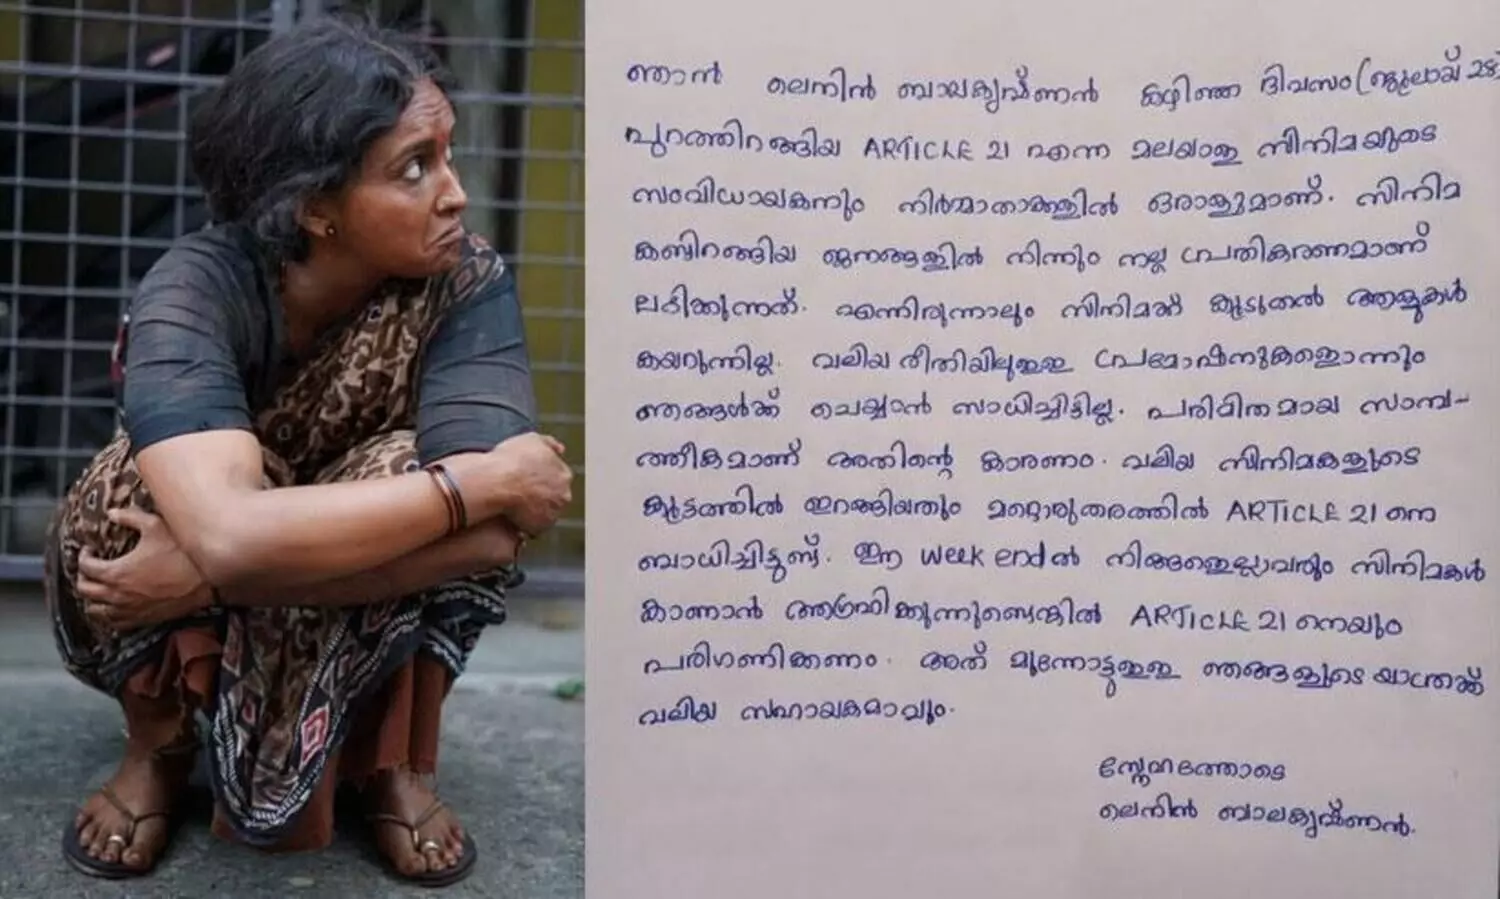 ഞാൻ ലെനിൻ ബാലകൃഷ്ണൻ കഴിഞ്ഞ ദിവസം (ജൂലായ് 28)
പുറത്തിറങ്ങിയ ARTICLE 21 എന്ന മലയാള സിനിമയുടെ
സംവിധായകനും നിർമ്മാതാക്കളിൽ ഒരാളുമാണ്. സിനിമ
കണ്ടിറങ്ങിയ ജനങ്ങളിൽ നിന്നും നല്ല പ്രതികരണമാണ്
ലഭിക്കുന്നത്. എന്നിരുന്നാലും സിനിമക്ക് കൂടുതൽ ആളുകൾ
കയറുന്നില്ല. വലിയ രീതിയിലുള്ള പ്രമോഷനുകളൊന്നും
ഞങ്ങൾക്ക് ചെയ്യാൻ സാധിച്ചിട്ടില്ല. പരിമിതമായ സാമ്പ-
ത്തീകമാണ് അതിന്റെ കാരണം. വലിയ സിനിമകളുടെ
കൂട്ടത്തിൽ ഇറങ്ങിയതും മറ്റൊരുതരത്തിൽ ARTICLE 21 നെ
ബാധിച്ചിട്ടുണ്ട്. ഈ week endൽ നിങ്ങളെല്ലാവരും സിനിമകൾ
കാണാൻ ആഗ്രഹിക്കുന്നുണ്ടെങ്കിൽ ARTICLE 21 നെയും
പരിഗണിക്കണം. അത് മുന്നോട്ടുള്ള ഞങ്ങളുടെ യാത്രക്ക്
വലിയ സഹായകമാവും.
സ്നേഹത്തോടെ
ലെനിൻ ബാലകൃഷ്ണൻ.